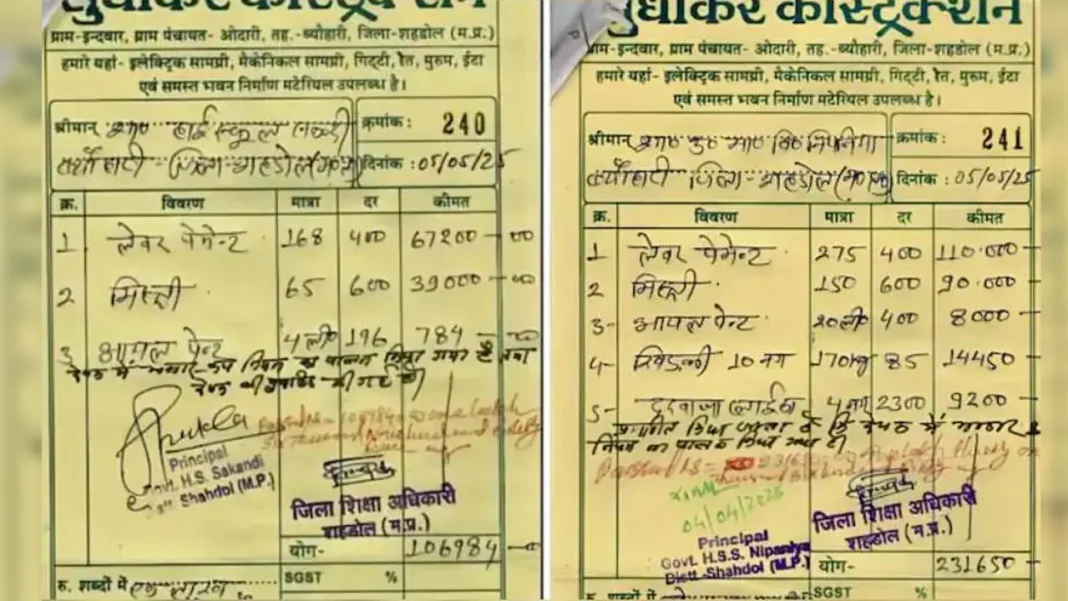 सुधाकर कंस्ट्रक्शन
ग्राम-इन्दवार, ग्राम पंचायत- ओदारी, तह.-ब्यौहारी, जिला-शहडोल (म.प्र.)
हमारे यहां- इलेक्ट्रिक सामग्री, मैकेनिकल सामग्री, गिट्टी, रेत, मुरुम, ईटा
एवं समस्त भवन निर्माण मटेरियल उपलब्ध है।
श्रीमान् शा० हाई स्कूल सकन्दी क्रमांक : 240
ब्यौहारी जिला-शहडोल (म०प्र०) दिनांक : 05/05/25
क्र. विवरण मात्रा दर कीमत
1 लेवर पेमेन्ट 168 400 67200-00
2 मिस्त्री 65 600 39000-00
3 आयल पेन्ट 4ली० 196 784-00
Principal
Govt. H.S. Sakandi
Distt. Shahdol (M.P.)
जिला शिक्षा अधिकारी
शहडोल (म.प्र.)
योग- 106984-00
रु. शब्दों में एक लाख SGST %
सुधाकर कंस्ट्रक्शन
ग्राम-इन्दवार, ग्राम पंचायत- ओदारी, तह.-ब्यौहारी, जिला-शहडोल (म.प्र.)
हमारे यहां- इलेक्ट्रिक सामग्री, मैकेनिकल सामग्री, गिट्टी, रेत, मुरुम, ईटा
एवं समस्त भवन निर्माण मटेरियल उपलब्ध है।
श्रीमान् शा० उ० मा० वि० निपनिया क्रमांक : 241
ब्यौहारी जिला-शहडोल (म०प्र०) दिनांक : 05/05/25
क्र. विवरण मात्रा दर कीमत
1 लेवर पेमेन्ट 275 400 110.000-
2 मिस्त्री 150 600 90.000-
3- आयल पेन्ट 20ली० 400 8000-
4- खिड़की 10 नग 170kg 85 14450-
5- दरवाजा 4 नग 2300 9200-
04/04/2025
Principal
Govt. H.S.S. Nipaniya
Distt-Shahdol (M.P.)
जिला शिक्षा अधिकारी
शहडोल (म.प्र.)
योग- 231650-
रु. शब्दों में SGST %